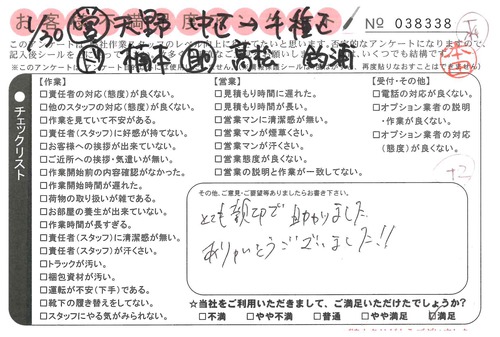 お客様不満足度
№ 038338
1/30 営 天野 中区→千種区
このアンケートは
記入後シールを
【作業】
□責任者の対応(態度)が良くない。
□他のスタッフの対応(態度)が良くない。
□作業を見ていて不安がある。
□責任者(スタッフ)に好感が持てない。
□お客様への挨拶が出来ていない。
□ご近所への挨拶・気遣いが無い。
□作業開始前の内容確認がなかった。
□作業開始時間が遅れた。
□荷物の取り扱いが雑である。
□お部屋の養生が出来ていない。
□作業時間が長すぎる。
□責任者(スタッフ)に清潔感が無い。
□責任者(スタッフ)が汗くさい。
□トラックが汚い。
□梱包資材が汚い。
□運転が不安(下手)である。
□靴下の履き替えをしてない。
□スタッフにやる気がみられない。
【営業】
□見積もり時間に遅れた。
□見積もり時間が長い。
□営業マンに清潔感が無い。
□営業マンが煙草くさい。
□営業マンが汗くさい。
□営業態度が良くない。
□営業の説明と作業が一致してない。
【受付・その他】
□電話の対応が良くない。
□オプション業者の説明
・作業が良くない。
□オプション業者の対応
(態度)が良くない。
チェックリスト
その他、ご意見・ご要望等ありましたらお書き下さい。
とても親切で助かりました
ありがとうございました!!
☆当社をご利用いただきまして、ご満足いただけたでしょうか?
□不満 □やや不満 □普通 □やや満足 ☑満足